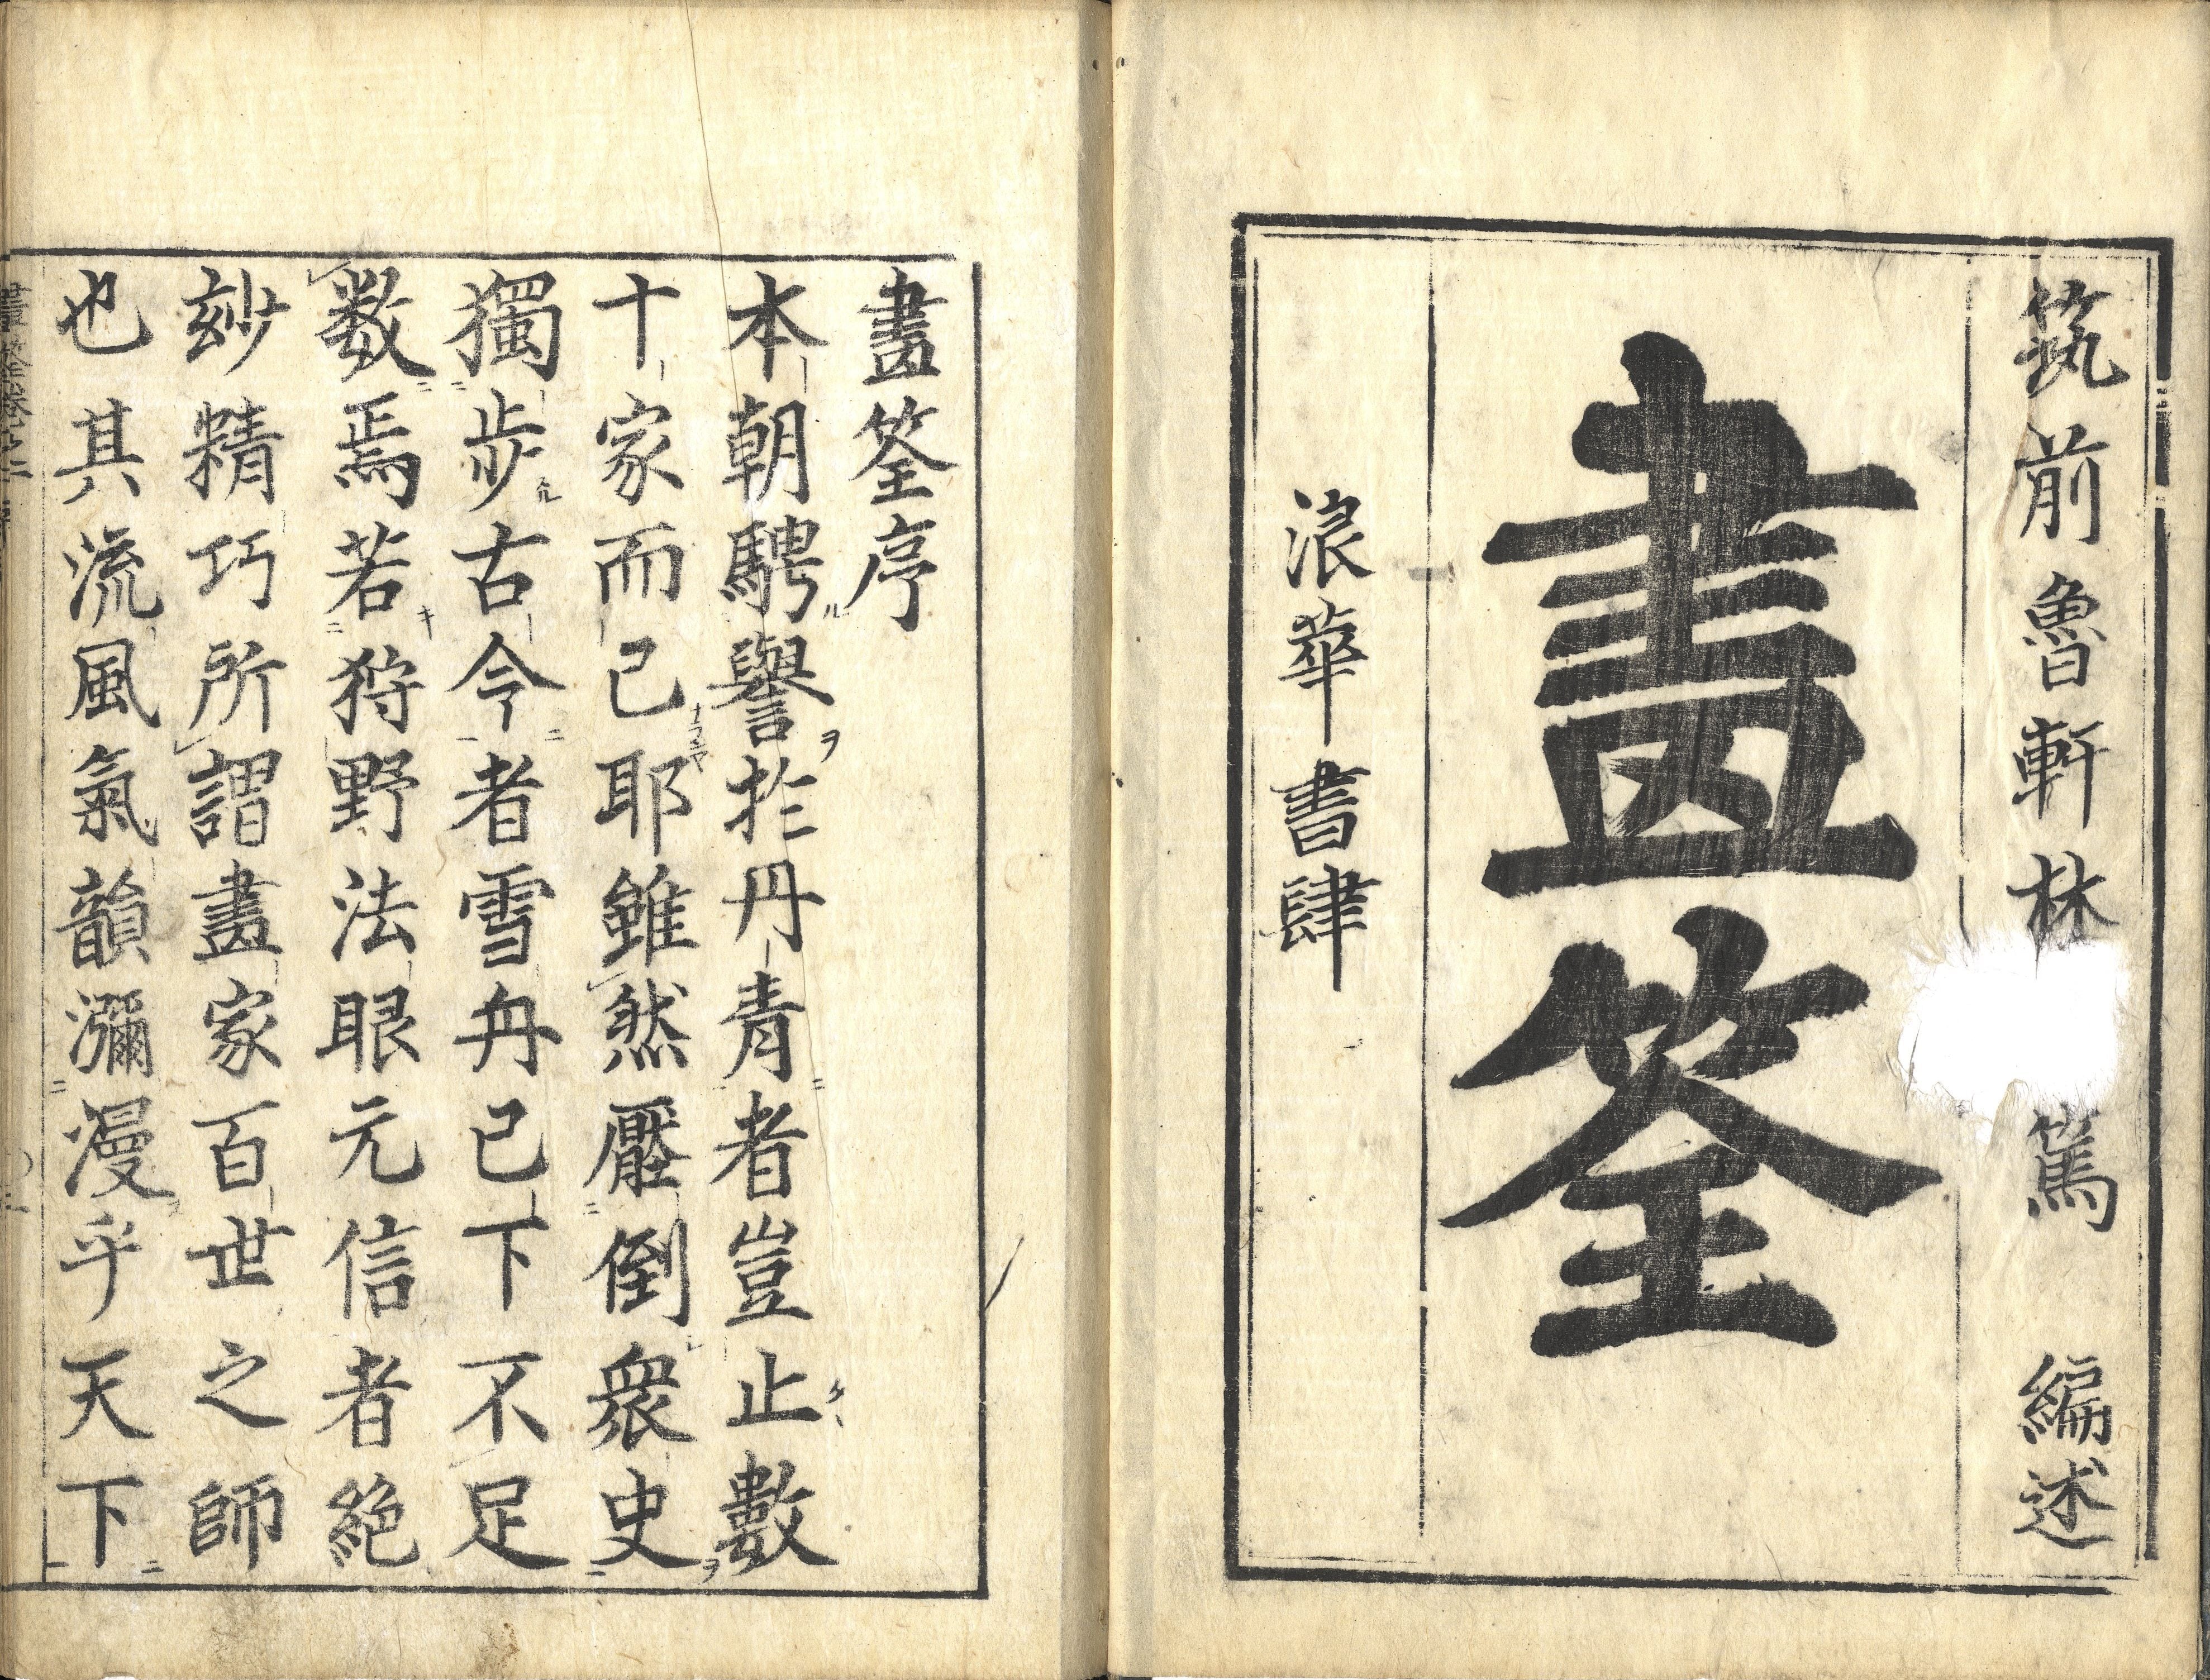 筑前魯軒林 篤 編述
畫筌
浪華書肆
畫筌序
本朝騁譽於丹青者豈止數
十家而已耶雖然壓倒衆史
獨步古今者雪舟已下不足
數焉若狩野法眼元信者絶
玅精巧所謂畫家百世之師
也其流風氣韻瀰漫乎天下